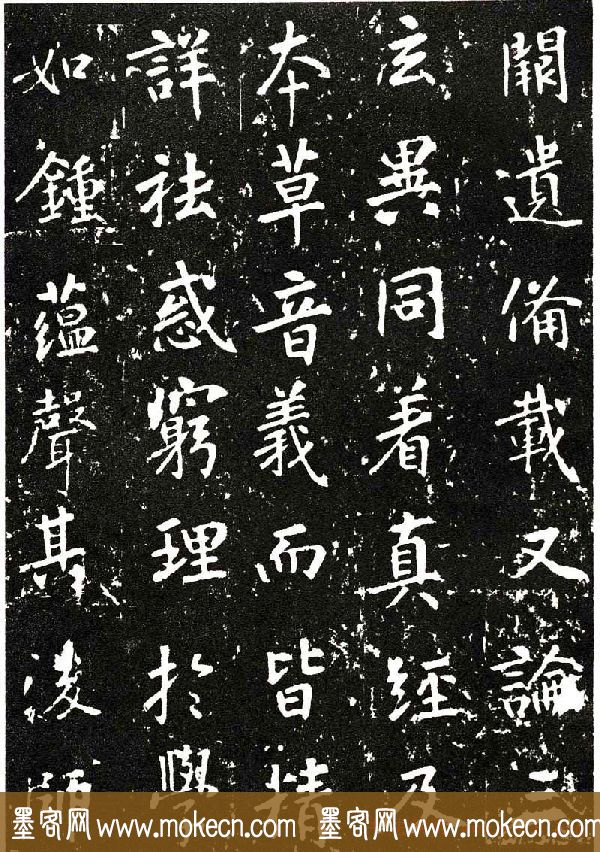 闕遺備載又論三
玄異同着真經及
本草音義而皆精
詳祛惑窮理於學
如鍾蘊聲其後師
墨客网 www.mokecn.com 墨客网 www.mokecn.com